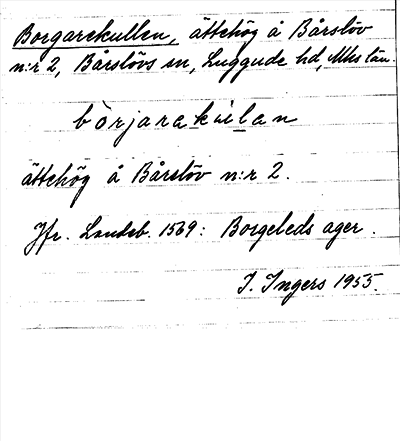 Borgarekullen, ättehög å Bårslöv
n:r 2, Bårslövs sn, Luggude hd, Mhs län.
bòrjarakùlan
ättehög å Bårslöv n:r 2.
Jfr. Landsb. 1569: Borgeleds ager.
I. Ingers 1955.